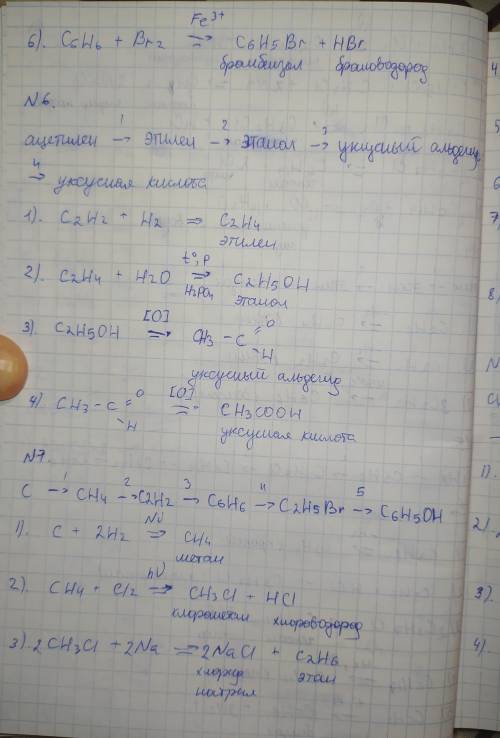 Fe3+
6). C6H6 + Br2 ⇒ C6H5Br + HBr
бромбензол бромоводород
N6.
ацетилен 1→ этилен 2→ этанол 3→ уксусный альдегид
4⇒ уксусная кислота
1). C2H2 + H2 ⇒ C2H4
этилен
t°, p
2). C2H4 + H2O ⇒ C2H5OH
H3PO4 этанол
[O]
3). C2H5OH ⇒ CH3 – C = O
H
уксусный альдегид
4) CH3 – C = O [O] ⇒ CH3COOH
H
уксусная кислота
N7.
C 1→ CH4 2→ C2H2 3→ C6H6 4→ C2H5Br 5→ C6H5OH
Ni
1). C + 2H2 ⇒ CH4
метан
hν
2). CH4 + Cl2 ⇒ CH3Cl + HCl
хлорметан хлороводород
3). 2CH3Cl + 2Na ⇒ 2NaCl + C2H6
хлорид этан
натрия